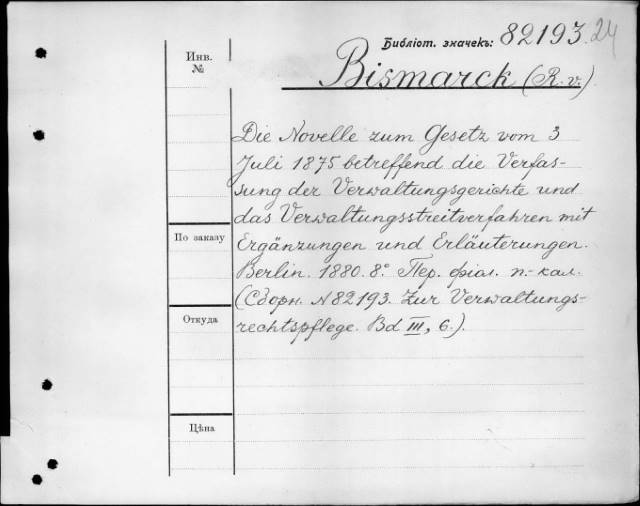 Библіот. значекъ: 82193.24
Инв.
№
Bismarck (R. v.)
Die Novelle zum Gesetz vom 3
Juli 1875 betreffend die Verfas-
sung der Verwaltungsgerichte und
das Verwaltungsstreitverfahren mit
По заказу
Ergänzungen und Erläuterungen.
Berlin. 1880. 8.° Пер. фіол. п.-кал.
(Сборн. №82193. Zur Verwaltungs-
Откуда
rechtspflege. Bd III, 6.).
Цѣна